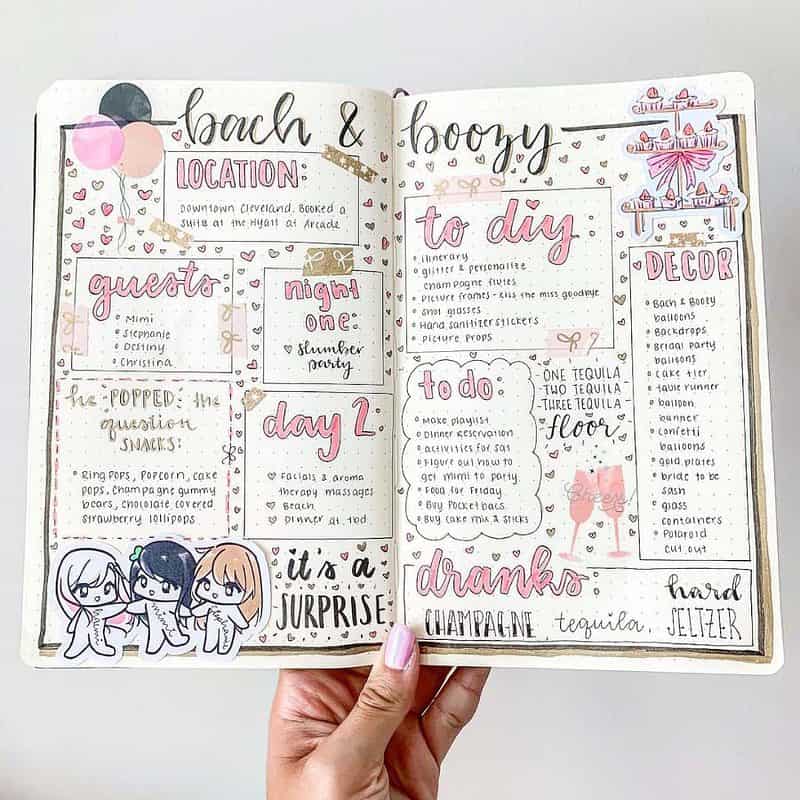 bach & boozy
LOCATION:
Downtown Cleveland. Booked a
suite at the Hyatt at Arcade
guests:
Mimi
Stephanie
Destiny
Christina
night
one:
slumber
party
he POPPED the
question
SNACKS:
Ring Pops, Popcorn, cake
pops, champagne gummy
bears, chocolate covered
strawberry lollipops
day 2:
Facials & aroma
therapy massages
Beach
Dinner at tbd
it's a
SURPRISE
mimi
to diy:
itinerary
glitter & personalize
champagne flutes
Picture frames - kiss the miss goodbye
shot glasses
Hand sanitizer stickers
Picture props
to do:
Make playlist
Dinner reservation
activities for sat
Figure out how to
get mimi to party
Food for Friday
Buy Pocket bacs
Buy cake mix & sticks
ONE TEQUILA
TWO TEQUILA
THREE TEQUILA
floor
Cheers!
DECOR
Bach & Boozy
balloons
Backdrops
Bridal party
balloons
cake tier
table runner
balloon
banner
confetti
balloons
gold plates
bride to be
sash
glass
containers
Polaroid
cut out
dranks:
CHAMPAGNE, tequila, hard
SELTZER